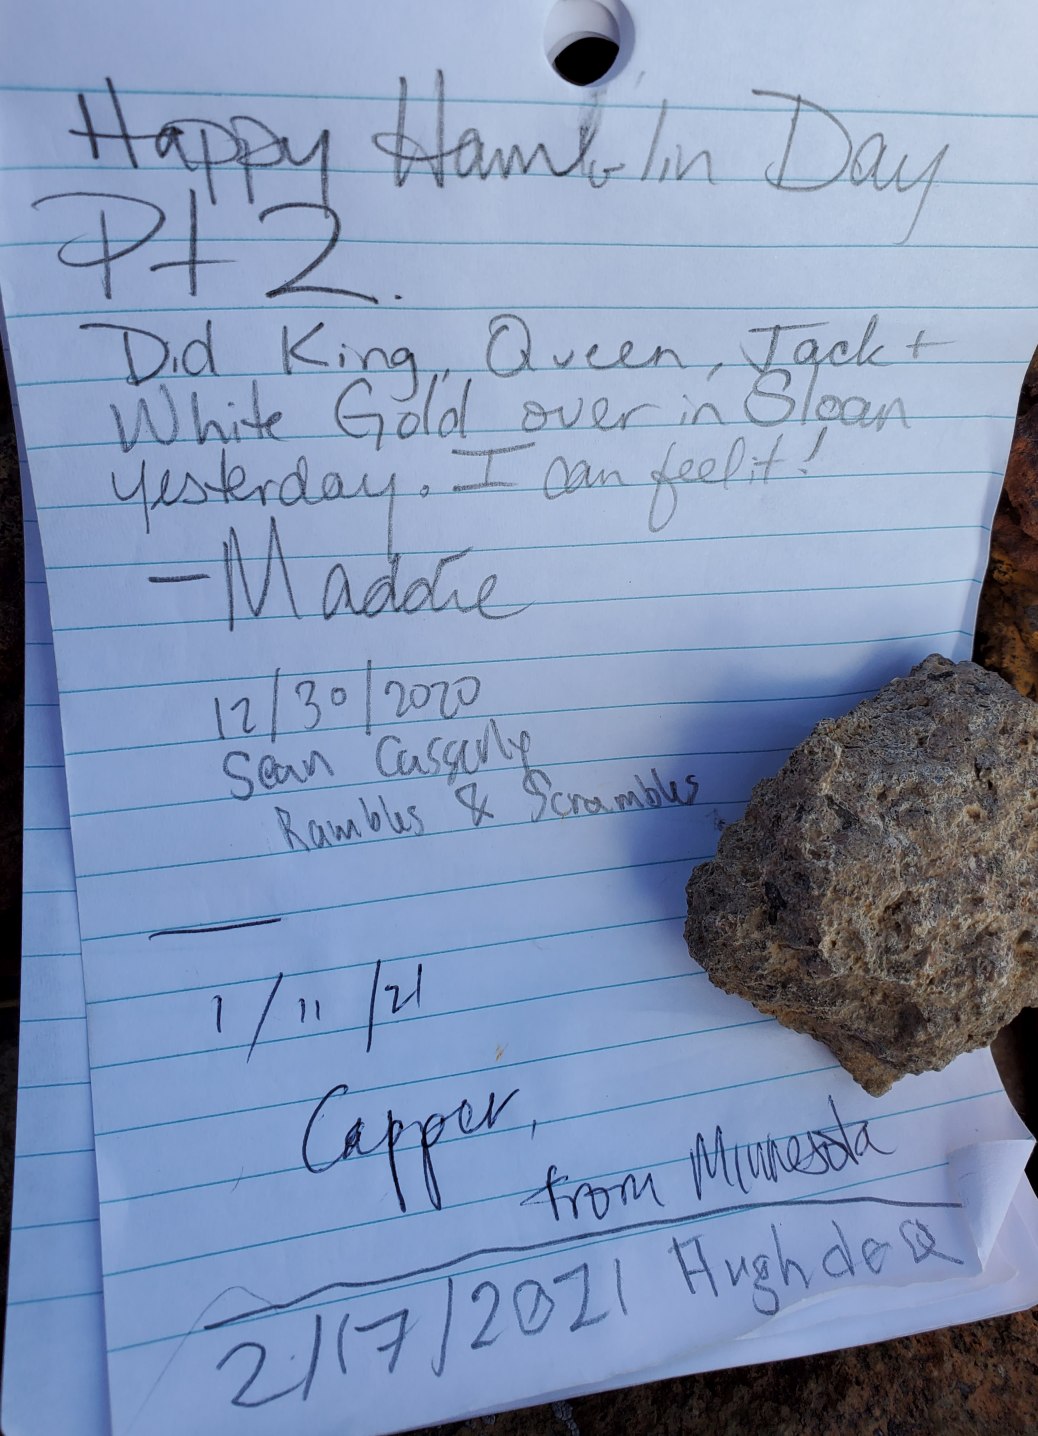 Happy Hamblin Day
Pt 2.
Did King, Queen, Jack +
White Gold over in Sloan
yesterday. I can feel it!
- Maddie
12/30/2020
Sean
Rambles & Scrambles
1/11/21
Capper,
from Minnesota
2/17/2021 Hugh